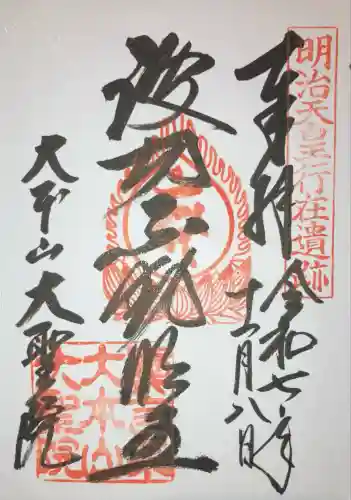 明治天皇行在遺跡
奉拝
令和七年十二月八日
波切不動明王
大本山大聖院
大本山
大聖院